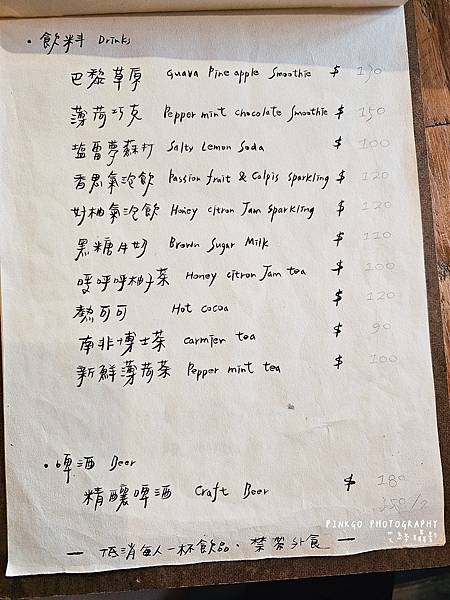 • 飲料 Drinks
巴黎草原 Guava Pineapple Smoothie $ 190
薄荷巧克 Peppermint chocolate Smoothie $ 150
塩雷夢蘇打 Salty Lemon Soda $ 100
香思氣泡飲 Passion fruit & Calpis Sparkling $ 120
好柚氣泡飲 Honey citron Jam Sparkling $ 120
黑糖牛奶 Brown Sugar Milk $ 110
暖呼呼柚子茶 Honey citron Jam tea $ 100
熱可可 Hot cocoa $ 120
南非博士茶 carmien tea $ 90
新鮮薄荷茶 Pepper mint tea $ 100
• 啤酒 Beer
精釀啤酒 Craft Beer $ 180
350/2
PINKGO PHOTOGRAPHY
攝影
— 低消每人一杯飲品。禁帶外食 —